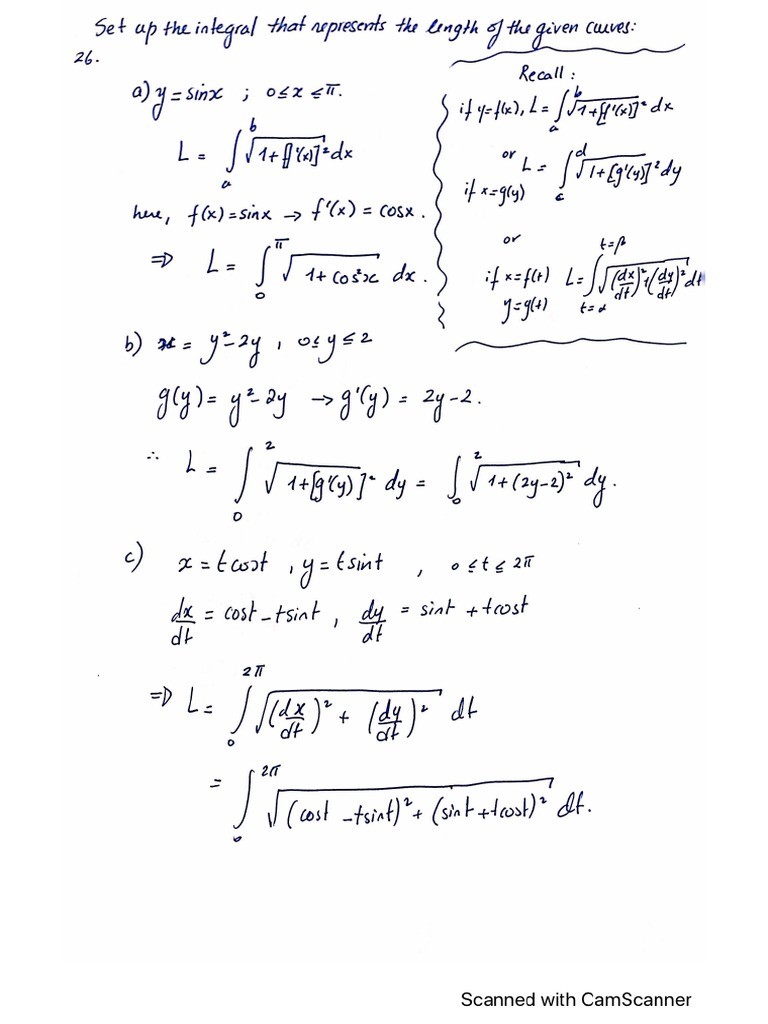 Set up the integral that represents the length of the given curves:
26.
a) y = sinx ; 0 ≤ x ≤ π.
L = ∫_a^b √(1+[f'(x)]²) dx
here, f(x) = sinx → f'(x) = cosx.
⇒ L = ∫_0^π √(1+cos²x) dx.
Recall :
if y=f(x), L = ∫_a^b √(1+[f'(x)]²) dx
or
if x=g(y) L = ∫_c^d √(1+[g'(y)]²) dy
or
if x=f(t) L = ∫_{t=α}^{t=β} √((dx/dt)²+(dy/dt)²) dt
y=g(t)
b) x = y²-2y , 0 ≤ y ≤ 2
g(y) = y²-2y → g'(y) = 2y-2.
∴ L = ∫_0^2 √(1+[g'(y)]²) dy = ∫_0^2 √(1+(2y-2)²) dy.
c) x = tcost , y = tsint , 0 ≤ t ≤ 2π
dx/dt = cost - tsint , dy/dt = sint + tcost
⇒ L = ∫_0^{2π} √((dx/dt)² + (dy/dt)²) dt
= ∫_0^{2π} √((cost - tsint)² + (sint + tcost)²) dt.
Scanned with CamScanner